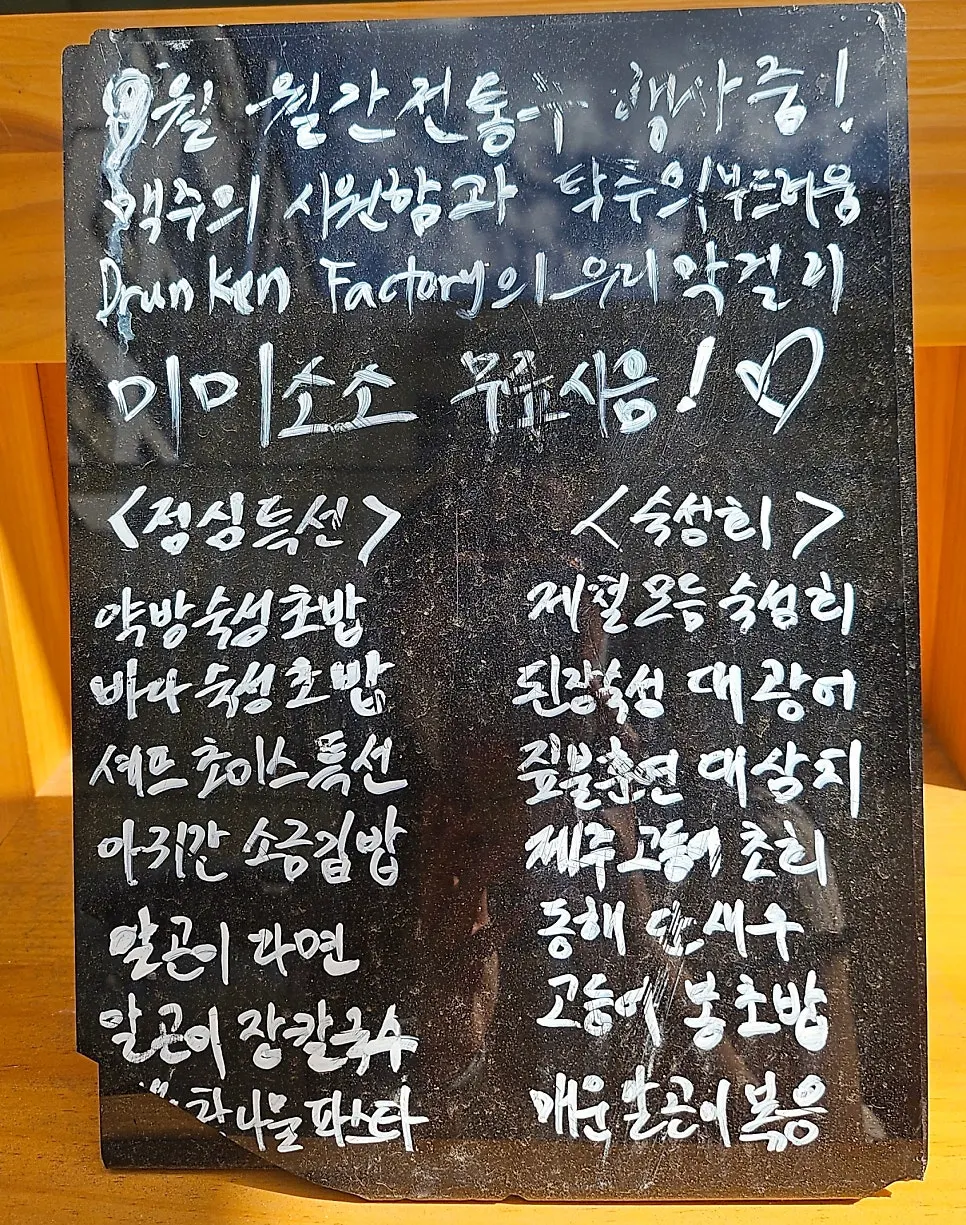 9월 월간전통주 행사중!
맥주의 시원함과 탁주의 부드러움
Drunken Factory의 우리 막걸리
미미소소 무료시음! ♡
<점심특선>
약방숙성초밥
바다숙성초밥
셰프초이스특선
아귀간 소금김밥
알곤이 라면
알곤이 장칼국수
나물파스타
<숙성회>
제철모듬숙성회
된장숙성 대광어
짚불훈연 대삼치
제주고등어 초회
동해 단새우
고등어 봉초밥
매운알곤이볶음